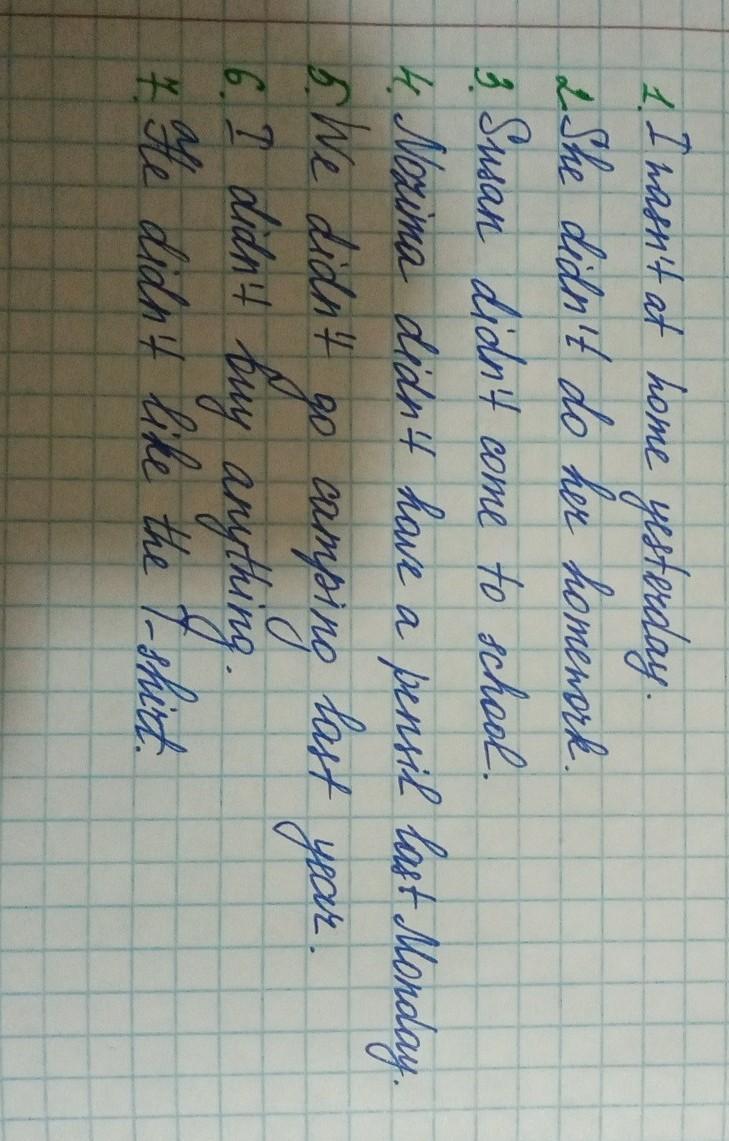 1. I wasn't at home yesterday.
2. She didn't do her homework.
3. Susan didn't come to school.
4. Nozima didn't have a pensil last Monday.
5. We didn't go camping last year.
6. I didn't buy anything.
7. He didn't like the T-shirt.